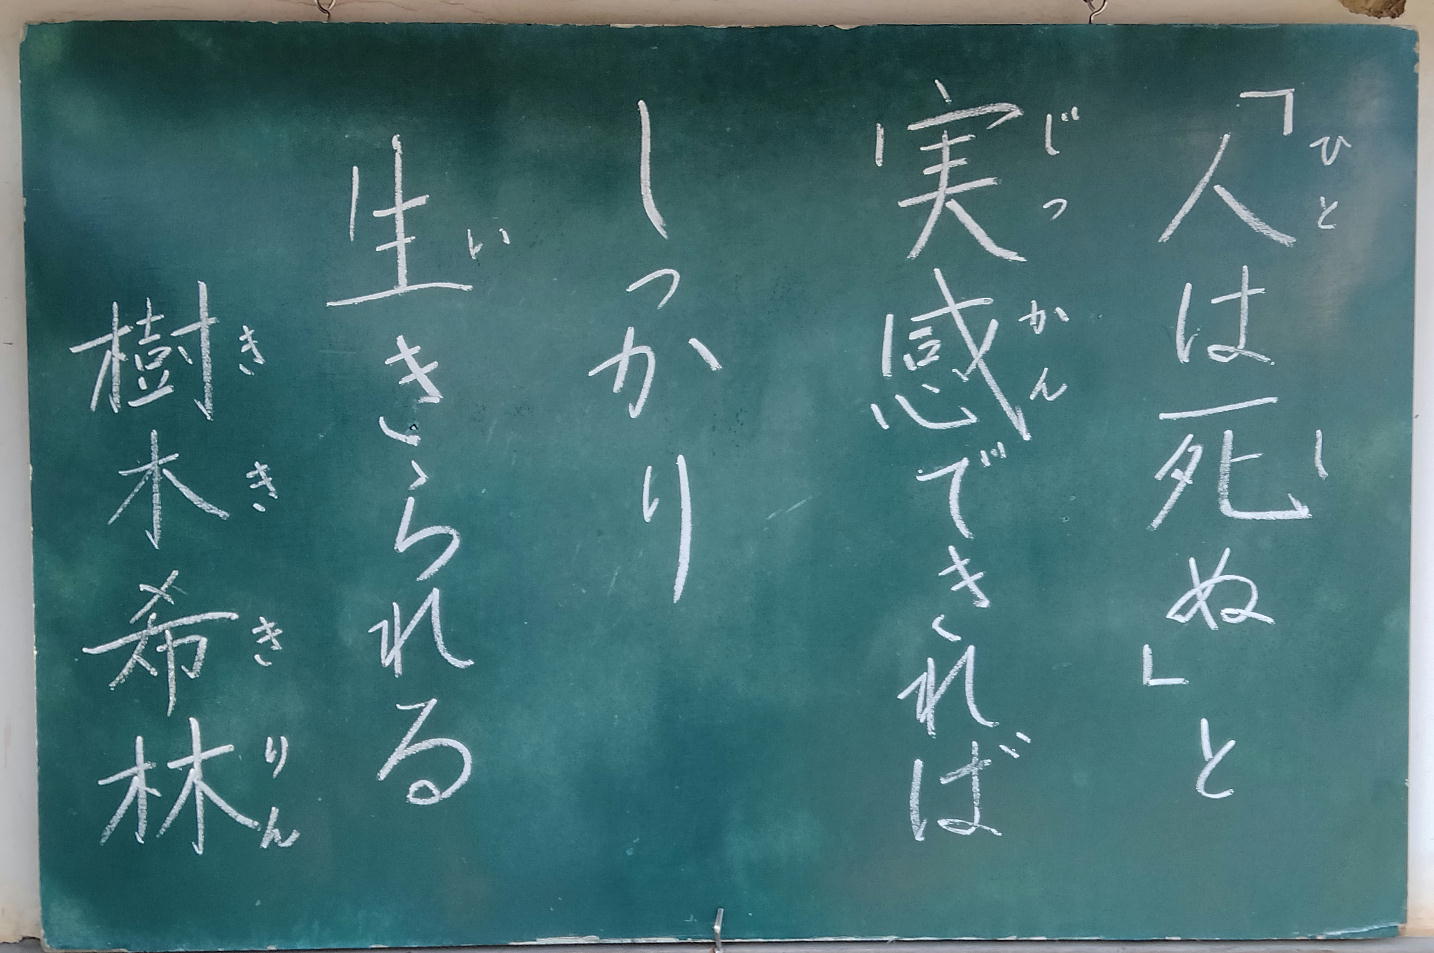 「人は死ぬ」と
実感できれば
しっかり
生きられる
樹木希林
ひと
し
じっかん
い
きききりん